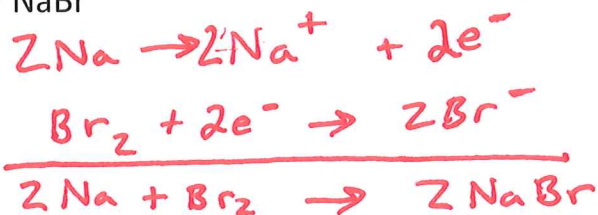 NaBr
2Na → 2Na⁺ + 2e⁻
Br₂ + 2e⁻ → 2Br⁻
2Na + Br₂ → 2NaBr